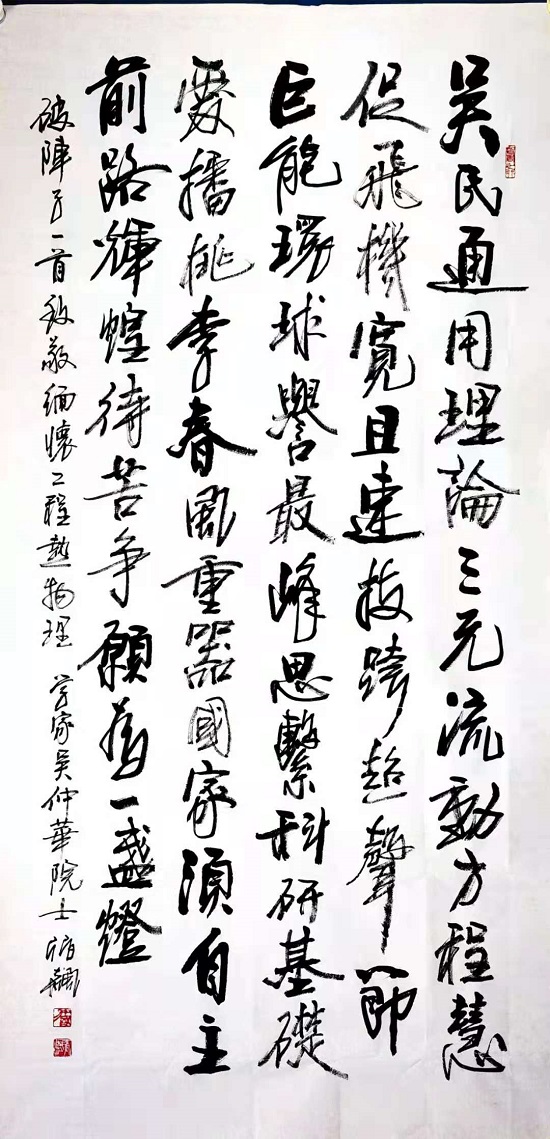 吴氏通用理論三元流動方程慧
促飛機寬且速跨超聲節
巨能環球譽最峰思繫科研基礎
愛播桃李春風重器國家須自主
前路輝煌待苦争願為一盞燈
破陣子一首致敬緬懷工程熱物理学家吴仲華院士